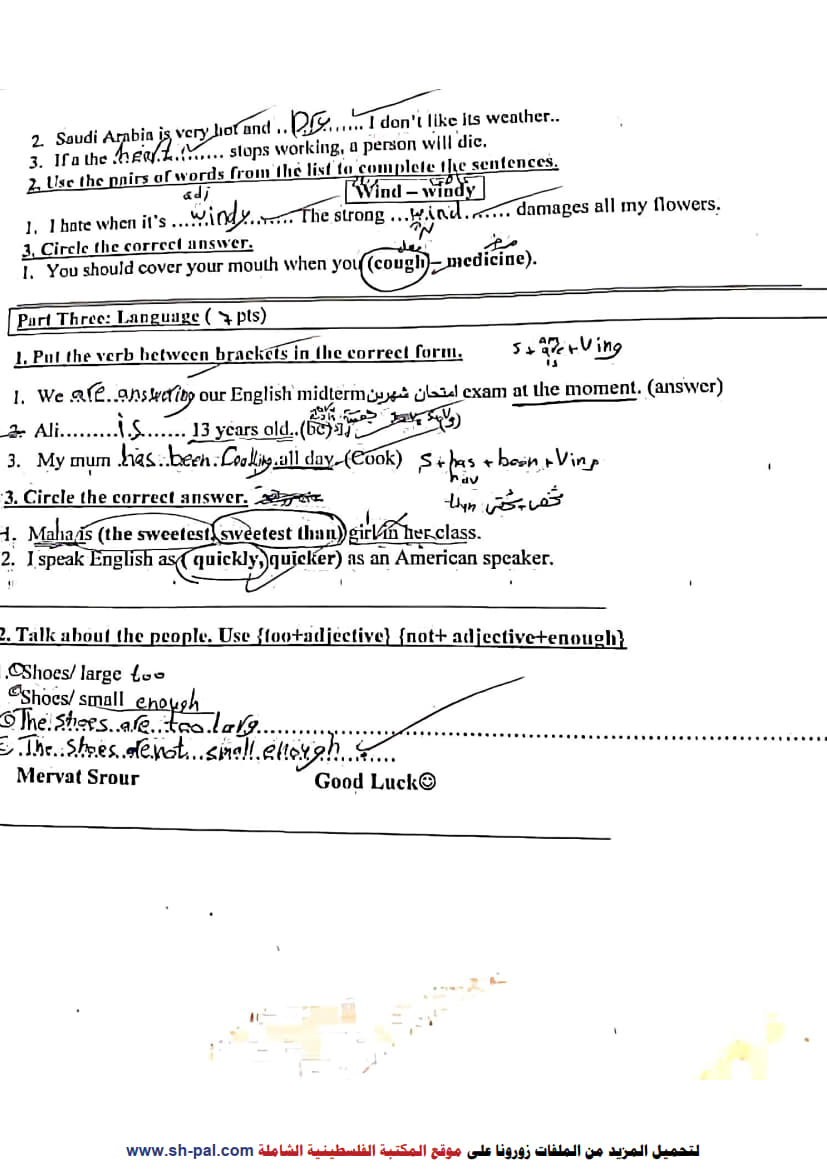 2. Saudi Arabia is very hot and ..Dry....... I don't like its weather..
3. If a the .heart......... stops working, a person will die.
2. Use the pairs of words from the list to complete the sentences.
adj
Wind – windy
1. I hate when it's ......windy....... The strong ...wind....... damages all my flowers.
N
3. Circle the correct answer.
1. You should cover your mouth when you (cough – medicine).
Part Three: Language ( 7 pts)
1. Put the verb between brackets in the correct form.
S + am are is + Ving
1. We are..answering our English midterm امتحان شهرين exam at the moment. (answer)
2- Ali.........is....... 13 years old..(be)
3. My mum has..been.Cooking.all day-(Cook) S + has + been + Ving
hav
3. Circle the correct answer.
1. Maha is (the sweetest, sweetest than) girl in her class.
2. I speak English as ( quickly, quicker) as an American speaker.
2. Talk about the people. Use {too+adjective} {not+ adjective+enough}
1. Shoes/ large too
Shoes/ small enough
The.shoes..are..too.larg.................
.The..shoes.arenot...small.enough........
Mervat Srour Good Luck☺
لتحميل المزيد من الملفات زورونا على موقع المكتبة الفلسطينية الشاملة www.sh-pal.com